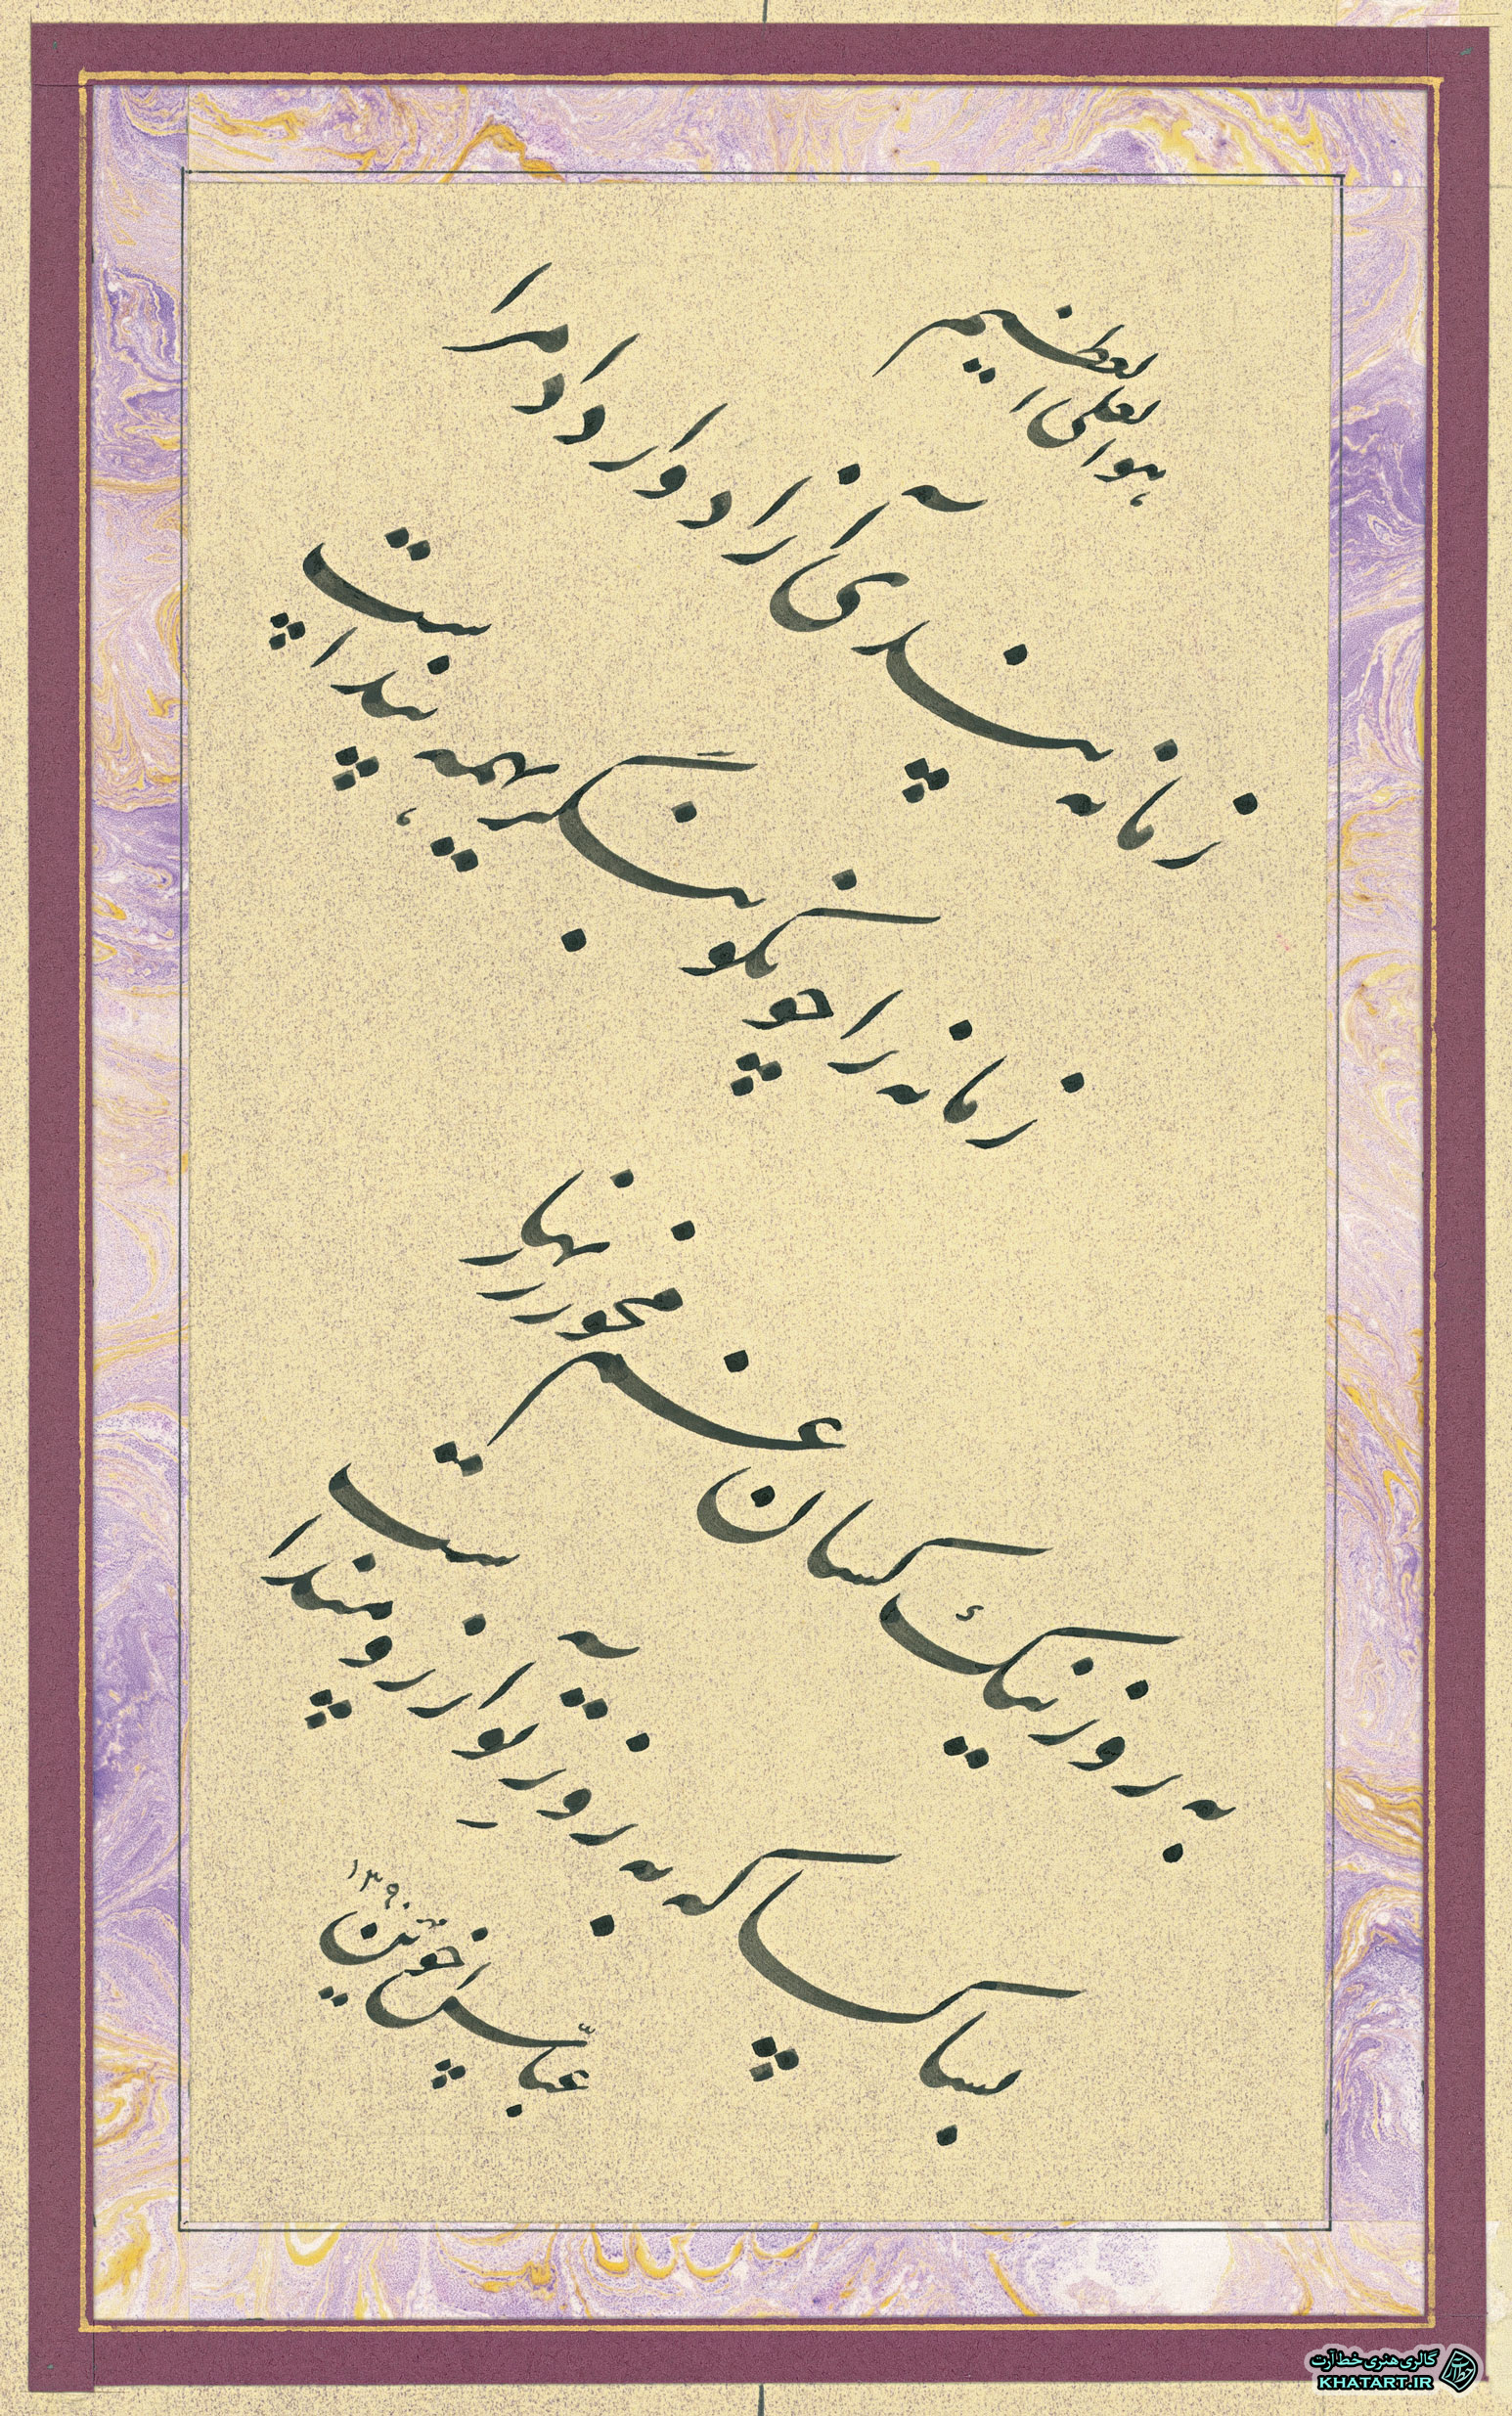 هوالعلی العظیم
زمانه پندی آزادوار داد مرا
زمانه را چو نکو بنگری همه پند است
به روز نیک کسان غم مخور زنهار
بسا کسا که به روز تو آرزومند است
عباس اخوین
۱۳۹۰
گالری هنری خط آرت
KHATART.IR